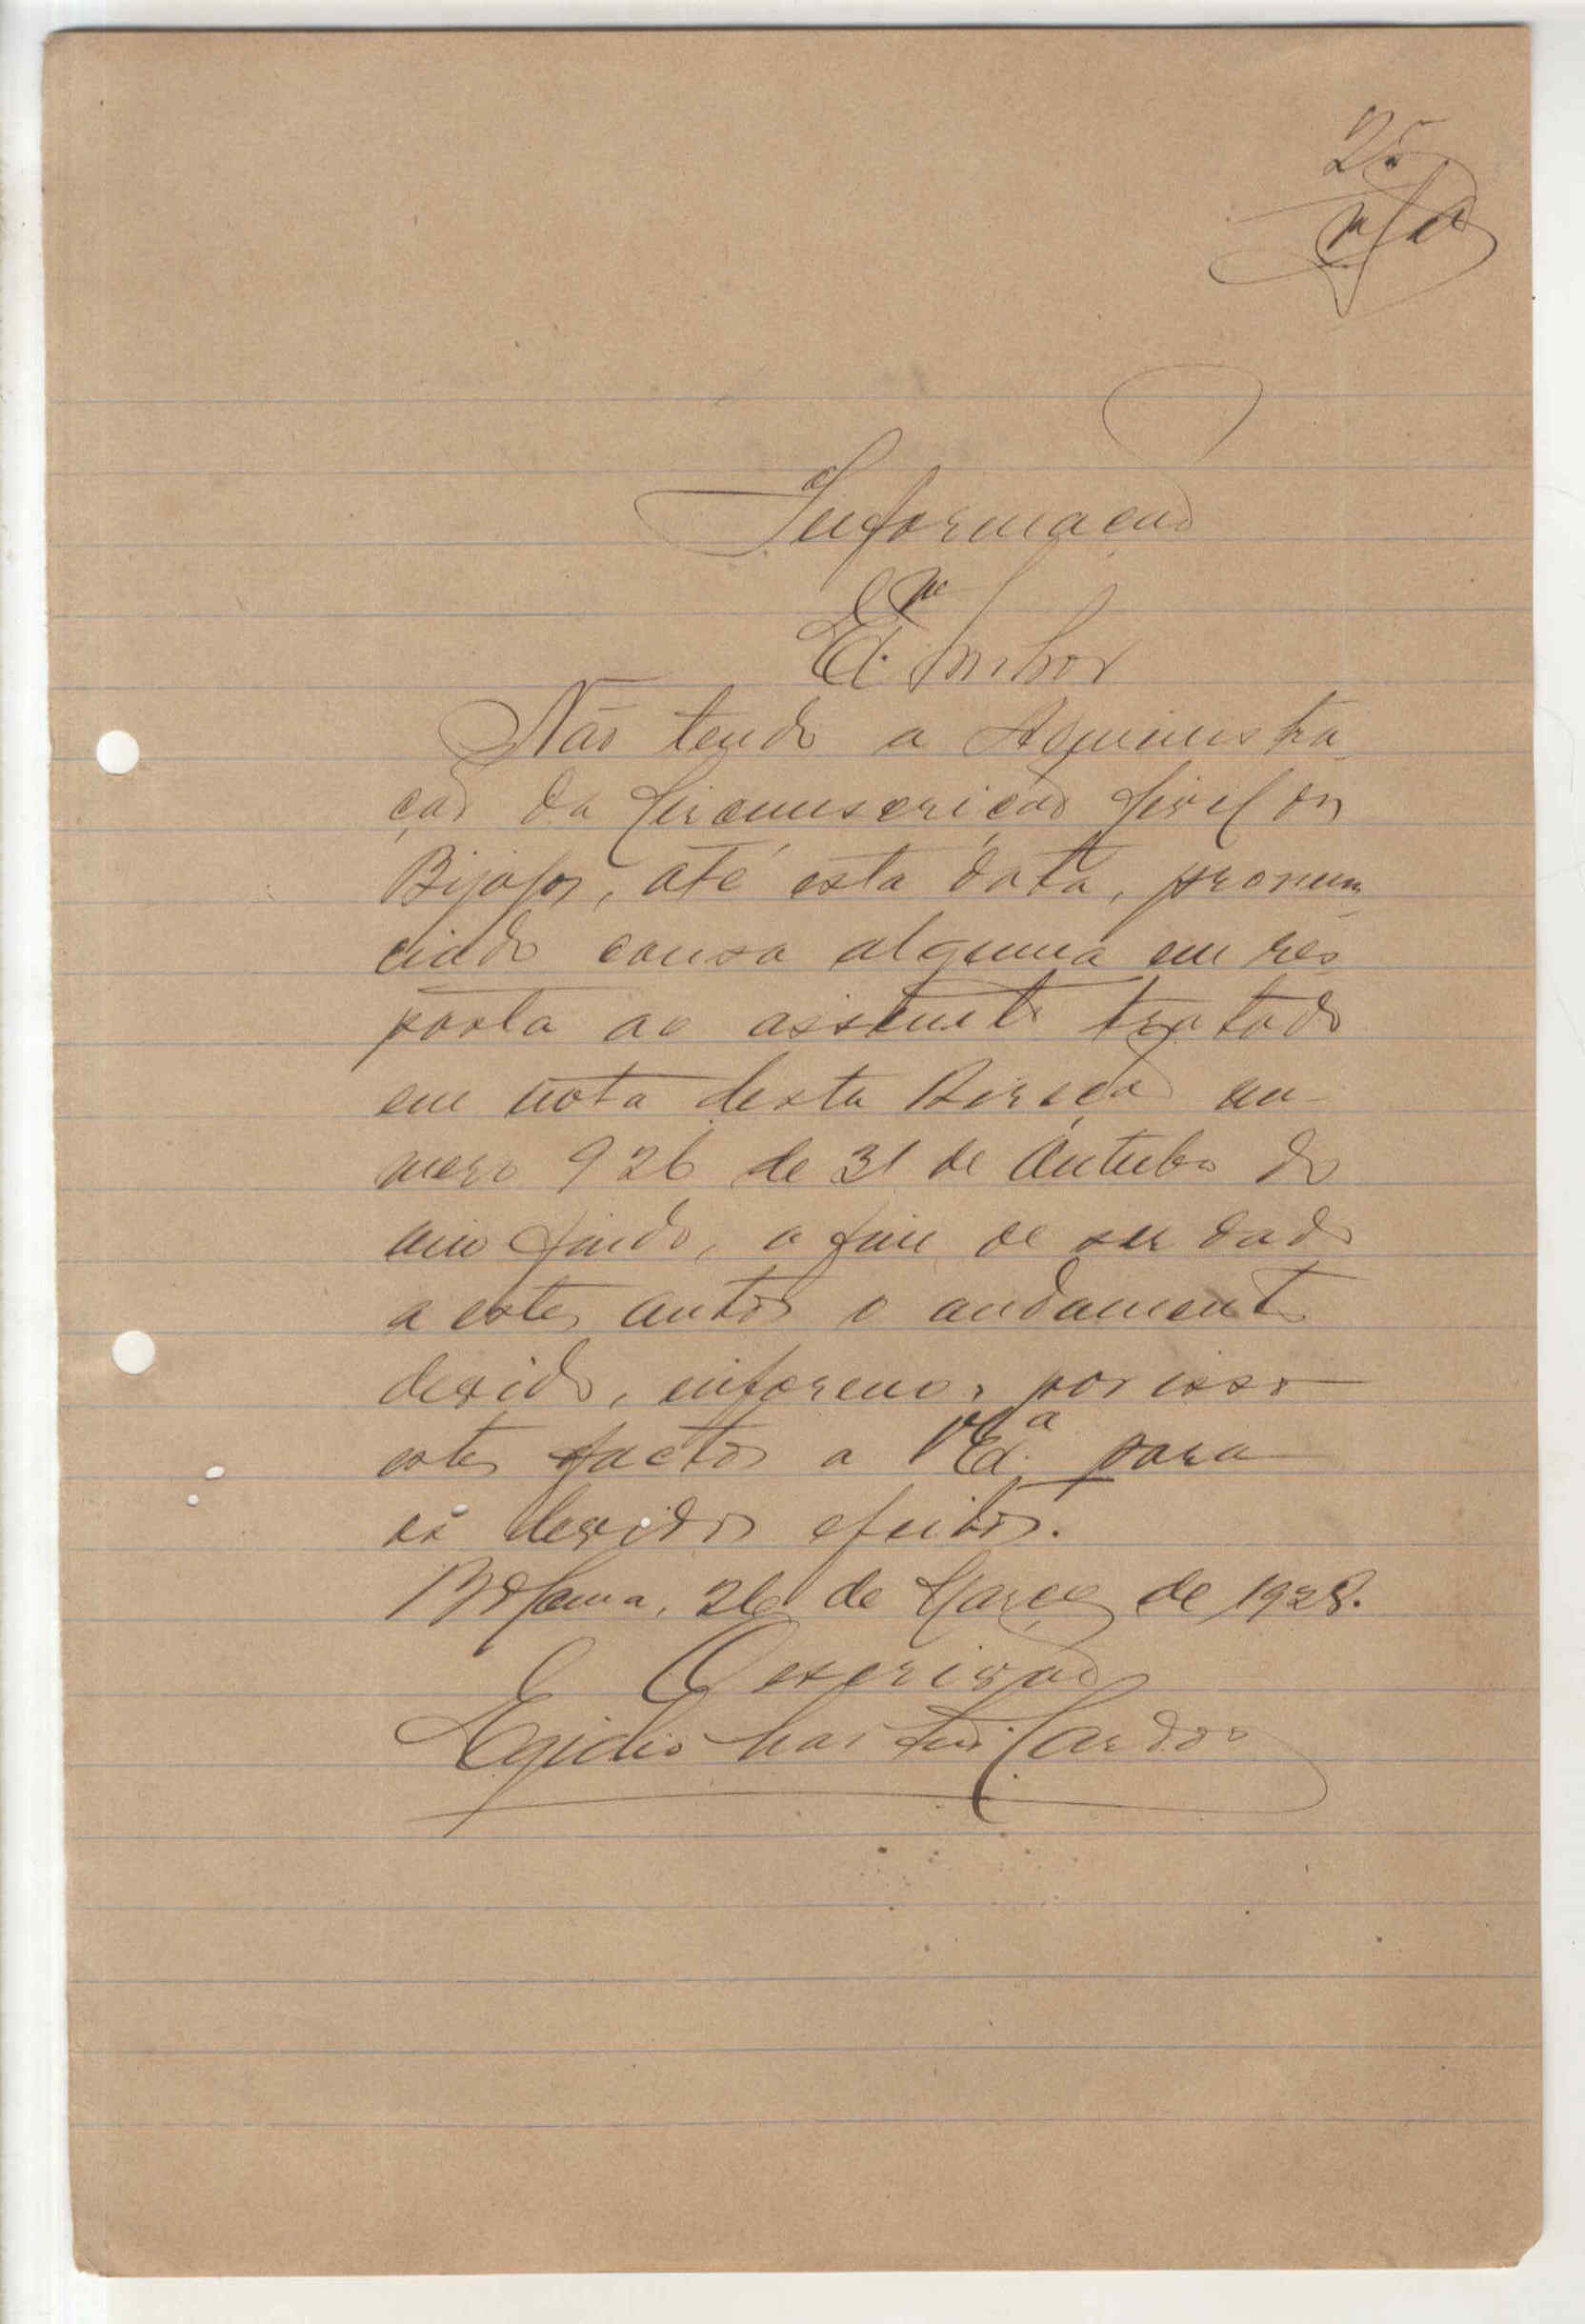 25
Informação
Exmo Senhor
Não tendo a Administra
ção da Circunscrição Civil dos
Bijagoz, até esta data, pronun
ciado causa alguma em res
posta ao assunto tratado
em nota desta Direção nu-
mero 926 de 31 de Outubro do
ano findo, a fim de ser dado
a estes autos o andamento
devido, informo, por isso
estes factos a V Exa. para
os devidos efeitos.
Bolama, 26 de Março de 1928.
O escrivão
Egidio Cardoso